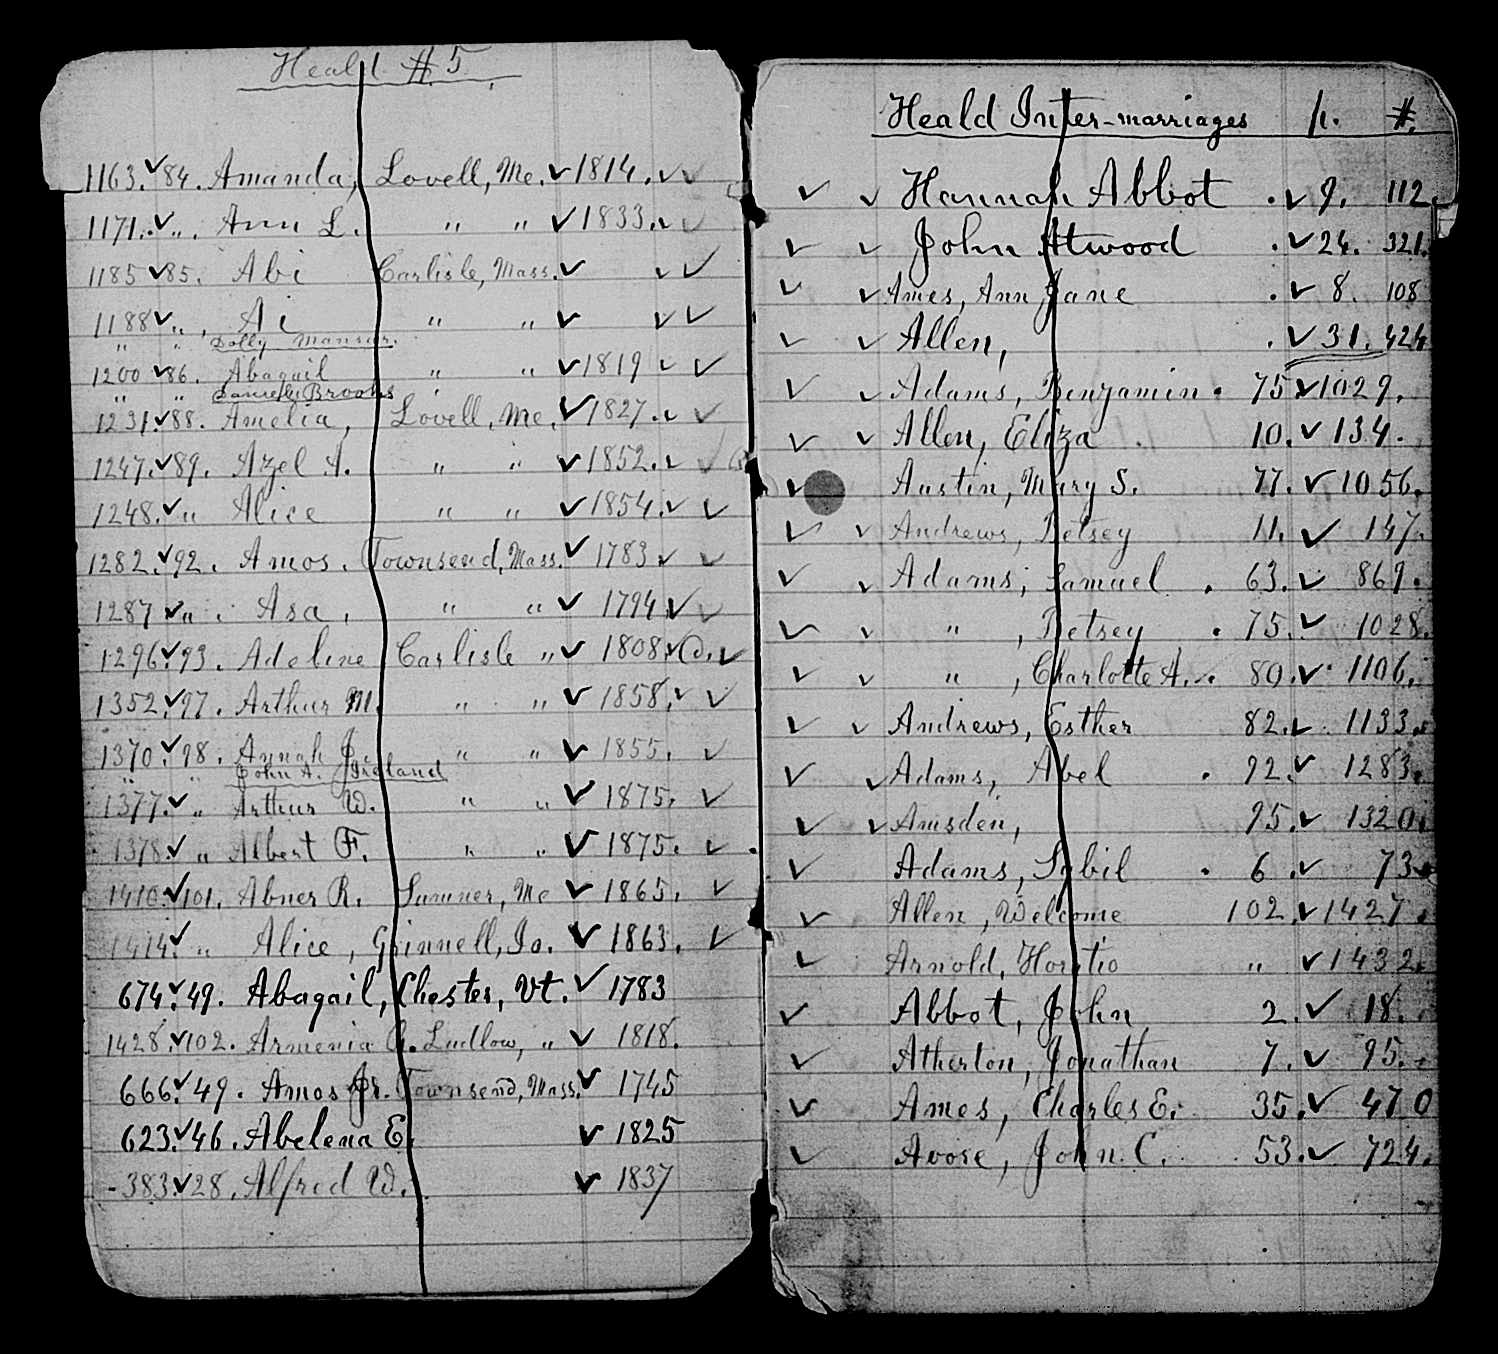 Heald #5
1163. ✓ 84. Amanda, Lovell, Me. ✓ 1814. ✓ ✓
1171. ✓ ". Ann L. " " ✓ 1833. ✓ ✓
1185 ✓ 85. Abi Carlisle, Mass. ✓ ✓ ✓
1188 ✓ ". Ai " " ✓ ✓ ✓
" " Dolly Mansur.
1200 ✓ 86. Abagail " " ✓ 1819 ✓ ✓
" " Daniel Brooks
1231. ✓ 88. Amelia, Lovell, Me. ✓ 1827. ✓ ✓
1247. ✓ 89. Azel A. " " ✓ 1852. ✓ ✓
1248. ✓ " Alice " " ✓ 1854. ✓ ✓
1282. ✓ 92. Amos. Townsend, Mass. ✓ 1783 ✓ ✓
1287 ✓ ". Asa, " " ✓ 1794 ✓ ✓
1296. ✓ 93. Adeline Carlisle " ✓ 1808. ✓ ✓
1352. ✓ 97. Arthur M. " " ✓ 1858. ✓ ✓
1370. ✓ 98. Annah J. " " ✓ 1855. ✓
" " John A. Ireland
1377. ✓ " Arthur W. " " ✓ 1875. ✓
1378. ✓ " Albert F. " " ✓ 1875. ✓
1410. ✓ 101. Abner R. Sumner, Me ✓ 1865. ✓
1414. ✓ " Alice, Grinnell, Io. ✓ 1863. ✓
674. ✓ 49. Abagail, Chester, Vt. ✓ 1783
1428. ✓ 102. Armenia A. Ludlow, " ✓ 1818.
666. ✓ 49. Amos Jr. Townsend, Mass. ✓ 1745
623. ✓ 46. Abelena E. ✓ 1825
-383. ✓ 28. Alfred W. ✓ 1837
Heald Inter-marriages p. #.
✓ ✓ Hannah Abbot . ✓ 9. 112.
✓ ✓ John Atwood . ✓ 24. 321.
✓ ✓ Ames, Ann Jane . ✓ 8. 108
✓ ✓ Allen, . ✓ 31. 424
✓ ✓ Adams, Benjamin . 75 ✓ 1029.
✓ ✓ Allen, Eliza . 10. ✓ 134.
✓ Austin, Mary S. 77. ✓ 1056.
✓ ✓ Andrews, Betsey 11. ✓ 147.
✓ ✓ Adams, Samuel . 63. ✓ 869.
✓ ✓ " , Betsey . 75. ✓ 1028.
✓ ✓ " , Charlotte A. . 80. ✓ 1106.
✓ ✓ Andrews, Esther 82. ✓ 1133.
✓ ✓ Adams, Abel . 92. ✓ 1283.
✓ ✓ Amsden, 95. ✓ 1320.
✓ Adams, Sybil . 6. ✓ 73.
✓ Allen, Welcome 102. ✓ 1427.
✓ Arnold, Horatio " ✓ 1432.
✓ Abbot, John 2. ✓ 18.
✓ Atherton, Jonathan 7. ✓ 95.
✓ Ames, Charles E. 35. ✓ 470
✓ Avore, John C. . 53. ✓ 724.